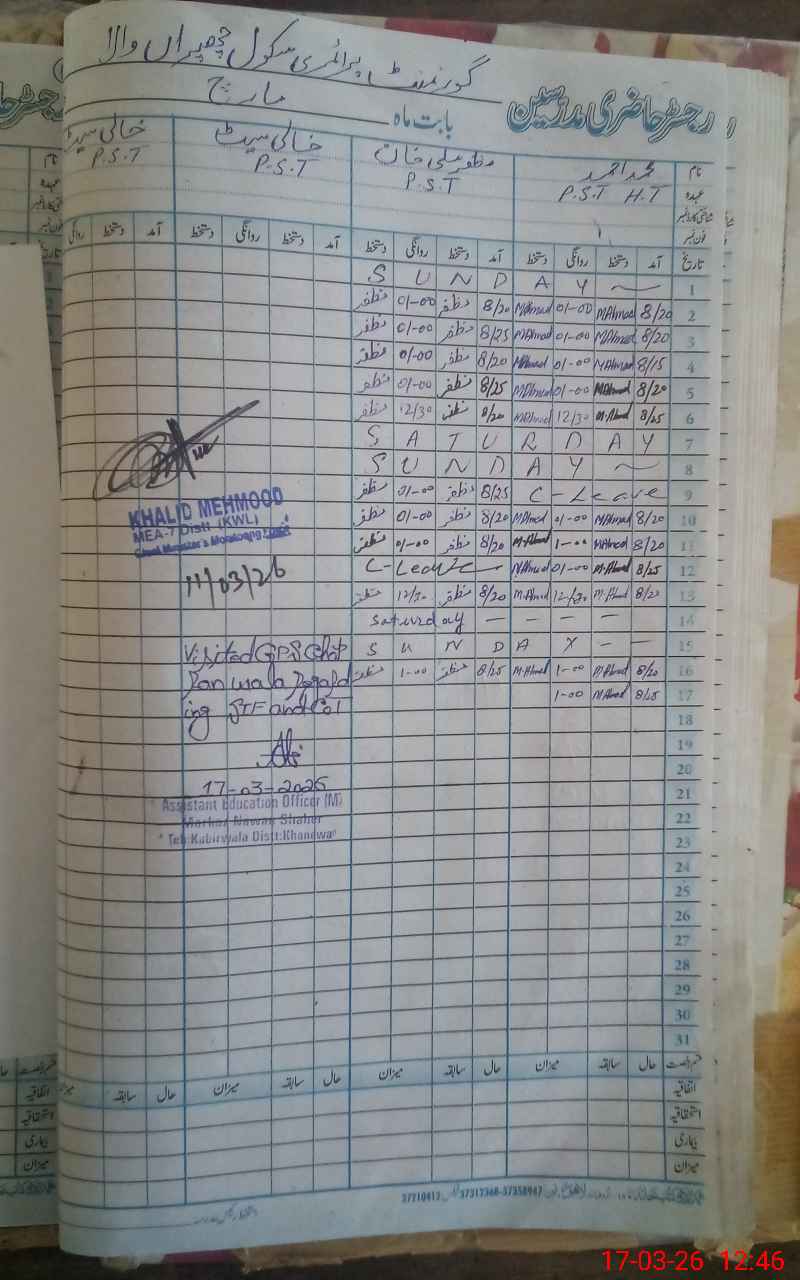 گورنمنٹ پرائمری سکول چھپراں والا
رجسٹر حاضری مدرسین
بابت ماہ مارچ
نام محمد احمد مظفر علی خان خالی سیٹ خالی سیٹ
عہدہ P.S.T H.T P.S.T P.S.T P.S.T
فون نمبر
تاریخ آمد دستخط روانگی دستخط آمد دستخط روانگی دستخط آمد دستخط روانگی دستخط آمد دستخط روانگی
1 S U N D A Y
2 8/20 MAhmad 01-00 MAhmad 8/20 مظفر 01-00 مظفر
3 8/20 MAhmad 01-00 MAhmad 8/25 مظفر 01-00 مظفر
4 8/15 MAhmad 01-00 MAhmad 8/20 مظفر 01-00 مظفر
5 8/20 MAhmad 01-00 MAhmad 8/25 مظفر 01-00 مظفر
6 8/25 M.Ahmad 12/30 MAhmad 8/20 مظفر 12/30 مظفر
7 S A T U R D A Y
8 S U N D A Y
9 C-Leave 8/25 مظفر 01-00 مظفر
10 8/20 MAhmad 01-00 MAhmad 8/20 مظفر 01-00 مظفر
11 8/20 MAhmad 1-00 M.Ahmad 8/20 مظفر 01-00 مظفر
12 8/25 M.Ahmad 01-00 MAhmad C-Leave
13 8/20 M.Ahmad 12/30 M.Ahmad 8/20 مظفر 12/30 مظفر
14 Saturday — — — —
15 S U N D A Y — —
16 8/20 M.Ahmad 1-00 M.Ahmad 8/25 مظفر 1-00 مظفر
17 8/25 M.Ahmad 1-00
18
19
20
21
22
23
24
25
26
27
28
29
30
31
KHALID MEHMOOD
MEA-7 Distt (KWL)
Chief Minister's Monitoring
11/03/26
Visited GPS
wala
ing and
17-03-2025
Assistant Education Officer (M)
Markaz Nawan Shaher
Teh: Kabirwala Distt: Khanewal
حال سابقہ میزان حال سابقہ میزان حال سابقہ میزان حال سابقہ
اتفاقیہ
استحقاقیہ
بیماری
میزان
37710412 37317360-37358947
17-03-26 12:46